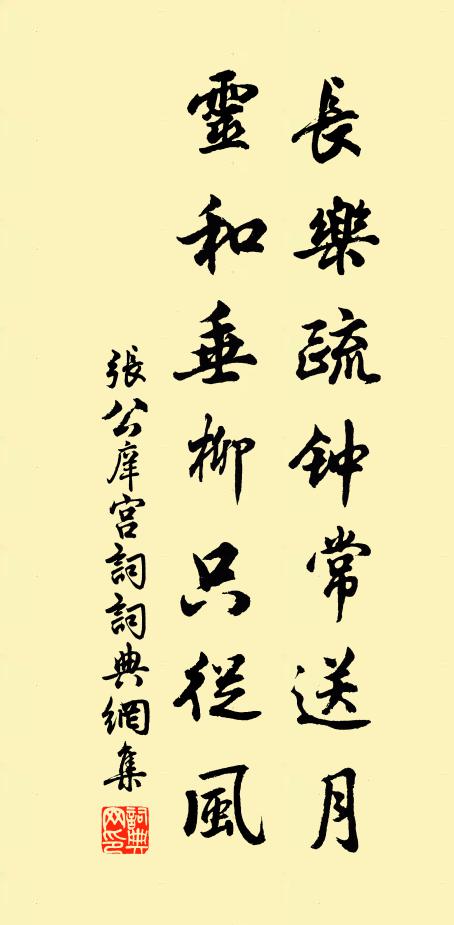 長樂疏钟常送月
靈和垂柳只從風
張公庠宫詞詞典網集
詞典网印